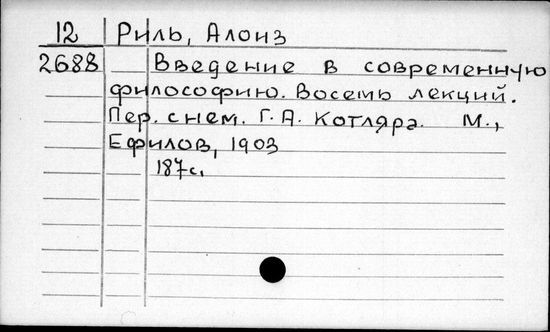 12 Риль, Алоиз
2688 Введение в современную
философию. Восемь лекций.
Пер. с нем. Г. А. Котляра. М.,
Ефилов, 1903
187с.